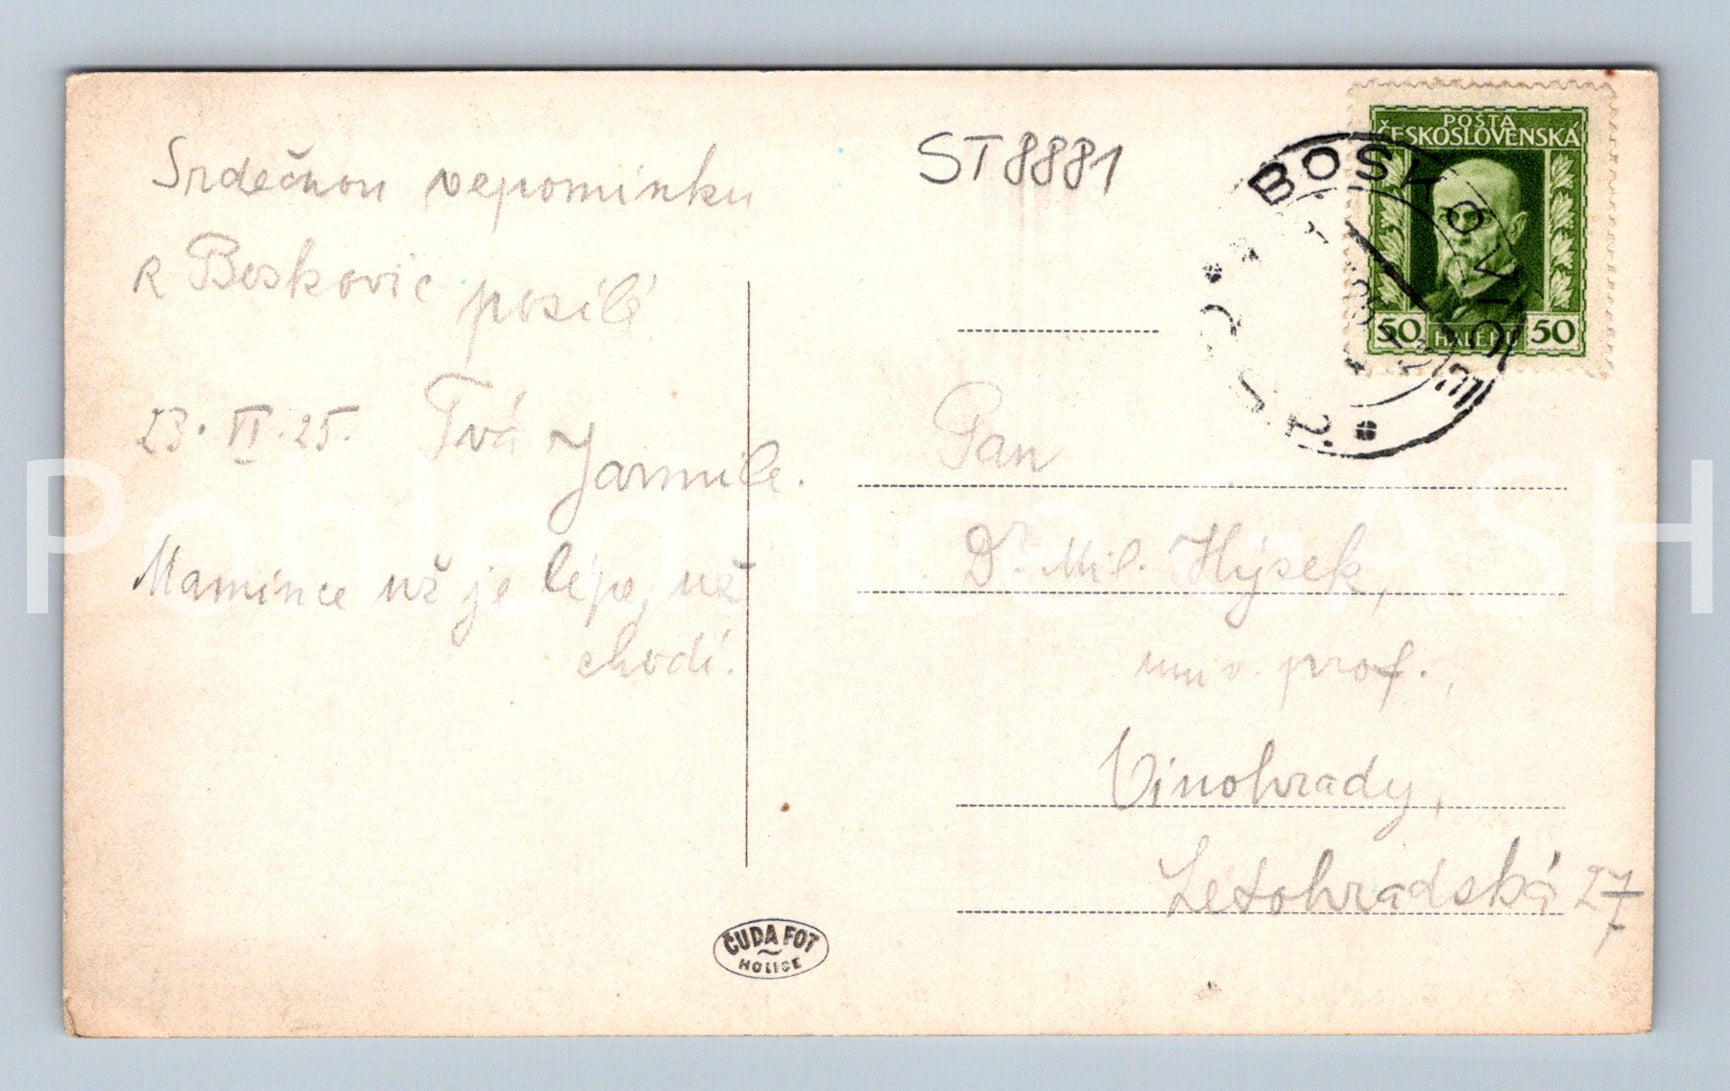 Srdečnou vzpomínku
z Boskovic posílá
23. VI. 25. Tvá Jarmila.
Mamince už je lépe, už
chodí.
ST8881
POŠTA
ČESKOSLOVENSKÁ
50 HALÉŘŮ 50
BOSKOVICE
Pan
Dr. Mil. Hýsek,
univ. prof.,
Vinohrady,
Letohradská 27
ČUDA FOT
HOLICE
Pohlednice CASH